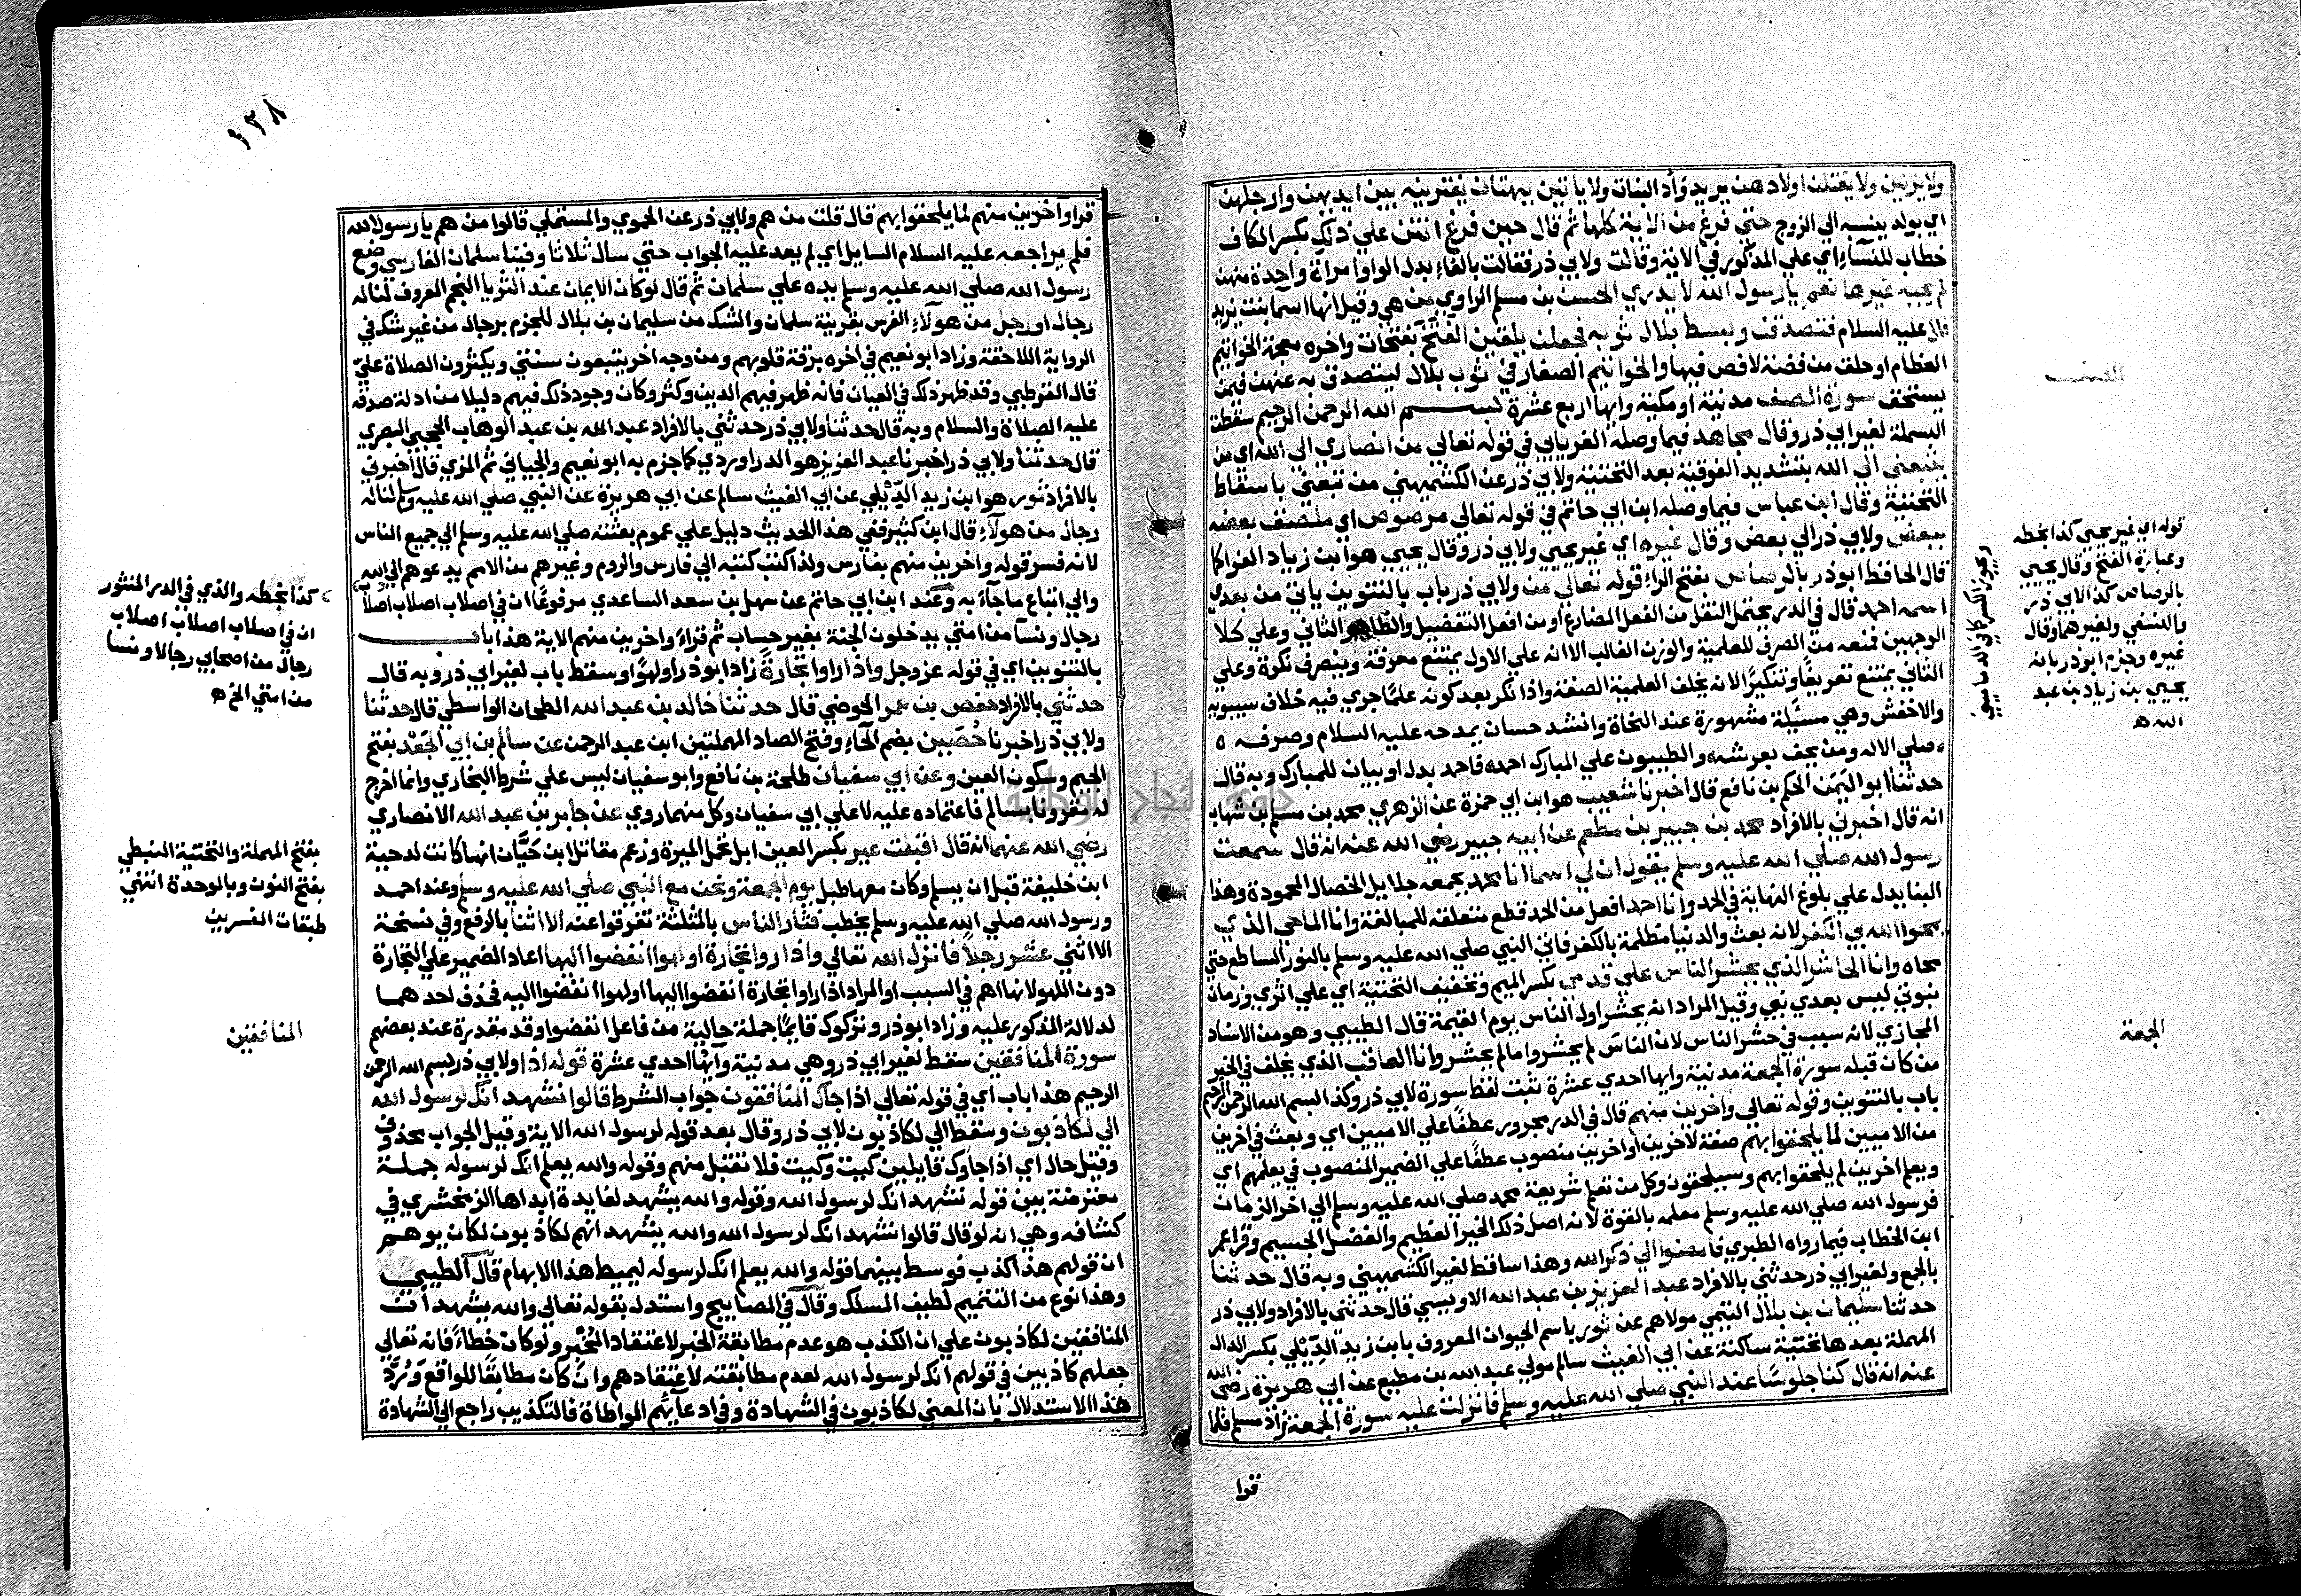 ولا يزنين ولا يقتلن اولادهن يريد وأد البنات ولا ياتين ببهتان يفترينه بين ايديهن وارجلهن
اي بولد ينسبه الي الزوج حتي فرغ من الاية كلها ثم قال حين فرغ انتن علي ذلك بكسر الكاف
خطاب للنسآء اي علي المذكور في الاية وقالت ولابي ذر فقالت بالفاء بدل الواو امراة واحدة منهن
لم يجبه غيرها نعم يا رسول الله لا يدري الحسن بن مسلم الراوي من هي وقيل انها اسما بنت يزيد
قال عليه السلام فتصدقن وبسط بلال ثوبه فجعلن يلقين الفتخ بفتحات واخره معجمة الخواتيم
العظام او حلق من فضة لا فص فيها والخواتيم الصغار في ثوب بلال ليتصدق به عنهن فيمن
يستحق سورة الصف مدنية او مكية وايها اربع عشرة بسم الله الرحمن الرحيم سقطت
البسملة لغير ابي ذر وقال مجاهد فيما وصله الفريابي في قوله تعالي من انصاري الي الله اي من
يتبعني الي الله بتشديد الفوقية بعد التحتية ولابي ذر عن الكشميهني من تبعني باسقاط
التحتية وقال ابن عباس فيما وصله ابن ابي حاتم في قوله تعالي مرصوص اي ملصق بعضه
ببعض ولابي ذر الي بعض وقال غيره اي غير يحيي ولابي ذر وقال يحيي هو ابن زياد الفرا كما
قال الحافظ ابو ذر بالرصاص بفتح الراء قوله تعالي من ولابي ذر باب بالتنوين ياتي من بعدي
اسمه احمد قال في الدر يحتمل النقل من الفعل المضارع او من افعل التفضيل والظاهر الثاني وعلي كلا
الوجهين فمنعه من الصرف للعلمية والوزن الغالب الا انه علي الاول يمتنع معرفة وينصرف نكرة وعلي
الثاني يمتنع تعريفًا وتنكيرًا لانه يخلف العلمية الصفة واذا نكر بعد كونه علمًا جري فيه خلاف سيبويه
والاخفش وهي مسئلة مشهورة عند النحاة وانشد حسان يمدحه عليه السلام وصرفه
صلي الاله ومن يحف بعرشه والطيبون علي المبارك احمد فاحمد بدل او بيان للمبارك وبه قال
حدثنا ابو اليمن الحكم بن نافع قال اخبرنا شعيب هو ابن ابي حمزة عن الزهري محمد بن مسلم بن شهاب
انه قال اخبرني بالافراد محمد بن جبير بن مطعم عن ابيه جبير رضي الله عنه انه قال سمعت
رسول الله صلي الله عليه وسلم يقول ان لي اسما انا محمد بجمعه جلايل الخصال المحمودة وهذا
البنا يدل علي بلوغ النهاية في الحمد وانا احمد افعل من الحمد قطع متعلقه للمبالغة وانا الماحي الذي
يمحوا الله بي الكفر لانه بعث والدنيا مظلمة بالكفر فاتي النبي صلي الله عليه وسلم بالنور الساطع حتي
محاه وانا الحاشر الذي يحشر الناس علي قدمي بكسر الميم وتخفيف التحتية اي علي اثري وزمان
نبوتي ليس بعدي نبي وقيل المراد انه يحشر اول الناس يوم القيمة قال الطيبي وهو من الاسناد
المجازي لانه سبب في حشر الناس لان الناس لم يحشروا ما لم يحشر وانا العاقب الذي يخلف في الخير
من كان قبله سورة الجمعة مدنية وايها احدي عشرة ثبت لفظ سورة لابي ذر وكذا البسم الله الرحمن الرحيم
باب بالتنوين وقوله تعالي واخرين منهم قال في الدر مجرور عطفًا علي الاميين اي وبعث في اخرين
من الاميين لما يلحقوا بهم صفة لاخرين او اخرين منصوب عطفًا علي الضمير المنصوب في يعلمهم اي
ويعلم اخرين لم يلحقوا بهم وسيلحقون وكل من تعلم شريعة محمد صلي الله عليه وسلم الي اخر الزمان
فرسول الله صلي الله عليه وسلم معلمه بالقوة لانه اصل ذلك الخير العظيم والفضل الجسيم وقرا عمر
ابن الخطاب فيما رواه الطبري فامضوا الي ذكر الله وهذا ساقط لغير الكشميهني وبه قال حدثنا
بالجمع ولغير ابي ذر حدثني بالافراد عبد العزيز بن عبد الله الاويسي قال حدثني بالافراد ولابي ذر
حدثنا سليمان بن بلال التيمي مولاهم عن ثور باسم الحيوان المعروف بابن زيد الديلي بكسر الدال
المهملة بعدها تحتية ساكنة عن ابي الغيث سالم مولي عبد الله بن مطيع عن ابي هريرة رضي الله
عنه انه قال كنا جلوسًا عند النبي صلي الله عليه وسلم فانزلت عليه سورة الجمعة زاد مسلم فلما
قوا
الصف
قوله اي غير يحيي كذا بخطه
وعبارة الفتح وقال يحيي
بالرصاص كذا لابي ذر
والنسفي ولغيرهما وقال
غيره وجزم ابو ذر بانه
يحيي بن زياد بن عبد
الله ه
ويجوز الكسر كما في الدماميني
الجمعة
١٣٨
قرا وآخرين منهم لما يلحقوا بهم قال قلت من هم ولابي ذر عن الحموي والمستملي قالوا من هم يا رسول الله
فلم يراجعه عليه السلام السايل اي لم يعد عليه الجواب حتي سال ثلاثا وفينا سلمان الفارسي وضع
رسول الله صلي الله عليه وسلم يده علي سلمان ثم قال لو كان الايمان عند الثريا النجم المعروف لناله
رجال او رجل من هولآء الفرس بقرينة سلمان والشك من سليمان بن بلال للجزم برجال من غير شك في
الرواية اللاحقة وزاد ابو نعيم في اخره برقة قلوبهم ومن وجه اخر يتبعون سنتي ويكثرون الصلاة عليّ
قال القرطبي وقد ظهر ذلك في العيان فانه ظهر فيهم الدين وكثر وكان وجود ذلك فيهم دليلا من ادلة صدقه
عليه الصلاة والسلام وبه قال حدثنا ولابي ذر حدثني بالافراد عبد الله بن عبد الوهاب الحجبي البصري
قال حدثنا ولابي ذر اخبرنا عبد العزيز هو الدراوردي كما جزم به ابو نعيم والجياني ثم المزي قال اخبرني
بالافراد ثور هو ابن زيد الديلي عن ابي الغيث سالم عن ابي هريرة عن النبي صلي الله عليه وسلم لناله
رجال من هولآء قال ابن كثير ففي هذا الحديث دليل علي عموم بعثته صلي الله عليه وسلم الي جميع الناس
لانه فسر قوله واخرين منهم بفارس ولذا كتب كتبه الي فارس والروم وغيرهم من الامم يدعوهم الي الله
والي اتباع ما جآء به وعند ابن ابي حاتم عن سهل بن سعد الساعدي مرفوعًا ان في اصلاب اصلاب اصلاب
رجال ونسآ من امتي يدخلون الجنة بغير حساب ثم قراء واخرين منهم الاية هذا باب
بالتنوين اي في قوله عز وجل واذا راوا تجارةً زاد ابو ذر او لهوًا وسقط باب لغير ابي ذر وبه قال
حدثني بالافراد حفص بن عمر الحوضي قال حدثنا خالد بن عبد الله الطحان الواسطي قال حدثنا
ولابي ذر اخبرنا حُصَين بضم الحآء وفتح الصاد المهملتين ابن عبد الرحمن عن سالم بن ابي الجعد بفتح
الجيم وسكون العين وعن ابي سفيان طلحة بن نافع وابو سفيان ليس علي شرط البخاري وانما اخرج
له مقرونا بسالم فاعتماده عليه لا علي ابي سفيان وكل منهما روي عن جابر بن عبد الله الانصاري
رضي الله عنهما انه قال اقبلت عير بكسر العين ابل تحمل الميرة وزعم مقاتل ابن حيَّان انها كانت لدحية
ابن خليفة قبل ان يسلم وكان معها طبل يوم الجمعة ونحن مع النبي صلي الله عليه وسلم وعند احمد
ورسول الله صلي الله عليه وسلم يخطب فثار الناس بالمثلثة تفرقوا عنه الا اثنا بالرفع وفي نسخة
الا اثني عشر رجلًا فانزل الله تعالي واذا راوا تجارة او لهوا انفضوا اليها اعاد الضمير علي التجارة
دون اللهو لانها اهم في السبب او المراد اذا راوا تجارة انفضوا اليها او لهوا انفضوا اليه فحذف احدهما
لدلالة المذكور عليه وزاد ابو ذر وتركوك قايمًا جملة حالية من فاعل انفضوا وقد مقدرة عند بعضهم
سورة المنافقين سقط لغير ابي ذر وهي مدنية وآيها احدي عشرة قوله اذا ولابي ذر بسم الله الرحمن
الرحيم هذا باب اي في قوله تعالي اذا جآك المنافقون جواب الشرط قالوا نشهد انك لرسول الله
الي لكاذبون وسقط الي لكاذبون لابي ذر وقال بعد قوله لرسول الله الاية وقيل الجواب محذوف
وقيل حال اي اذا جاؤك قايلين كيت وكيت فلا تقبل منهم وقوله والله يعلم انك لرسوله جملة
معترضة بين قوله نشهد انك لرسول الله وقوله والله يشهد لفايدة ابداها الزمخشري في
كشافه وهي انه لو قال قالوا نشهد انك لرسول الله والله يشهد انهم لكاذبون لكان يوهم
ان قولهم هذا كذب فوسط بينهما قوله والله يعلم انك لرسوله ليميط هذا الايهام قال الطيبي
وهذا نوع من التتميم لطيف المسلك وقال في المصابيح واستدل بقوله تعالي والله يشهد ان
المنافقين لكاذبون علي ان الكذب هو عدم مطابقة الخبر لاعتقاد المُخبِر ولو كان خطاءً فانه تعالي
جعلهم كاذبين في قولهم انك لرسول الله لعدم مطابقته لاعتقادهم وان كان مطابقًا للواقع ورُدَّ
هذا الاستدلال بان المعني لكاذبون في الشهادة وفي ادعآيهم المواطاة فالتكذيب راجع الي الشهادة
كذا بخطه والذي في الدر المنثور
ان في اصلاب اصلاب اصلاب
رجال من اصحابي رجالا ونسا
من امتي الخ ه
بفتح المهملة والتحتية النبطي
بفتح النون وبالموحدة انتهي
طبقات المفسرين
المنافقين
جامعة النجاح الوطنية